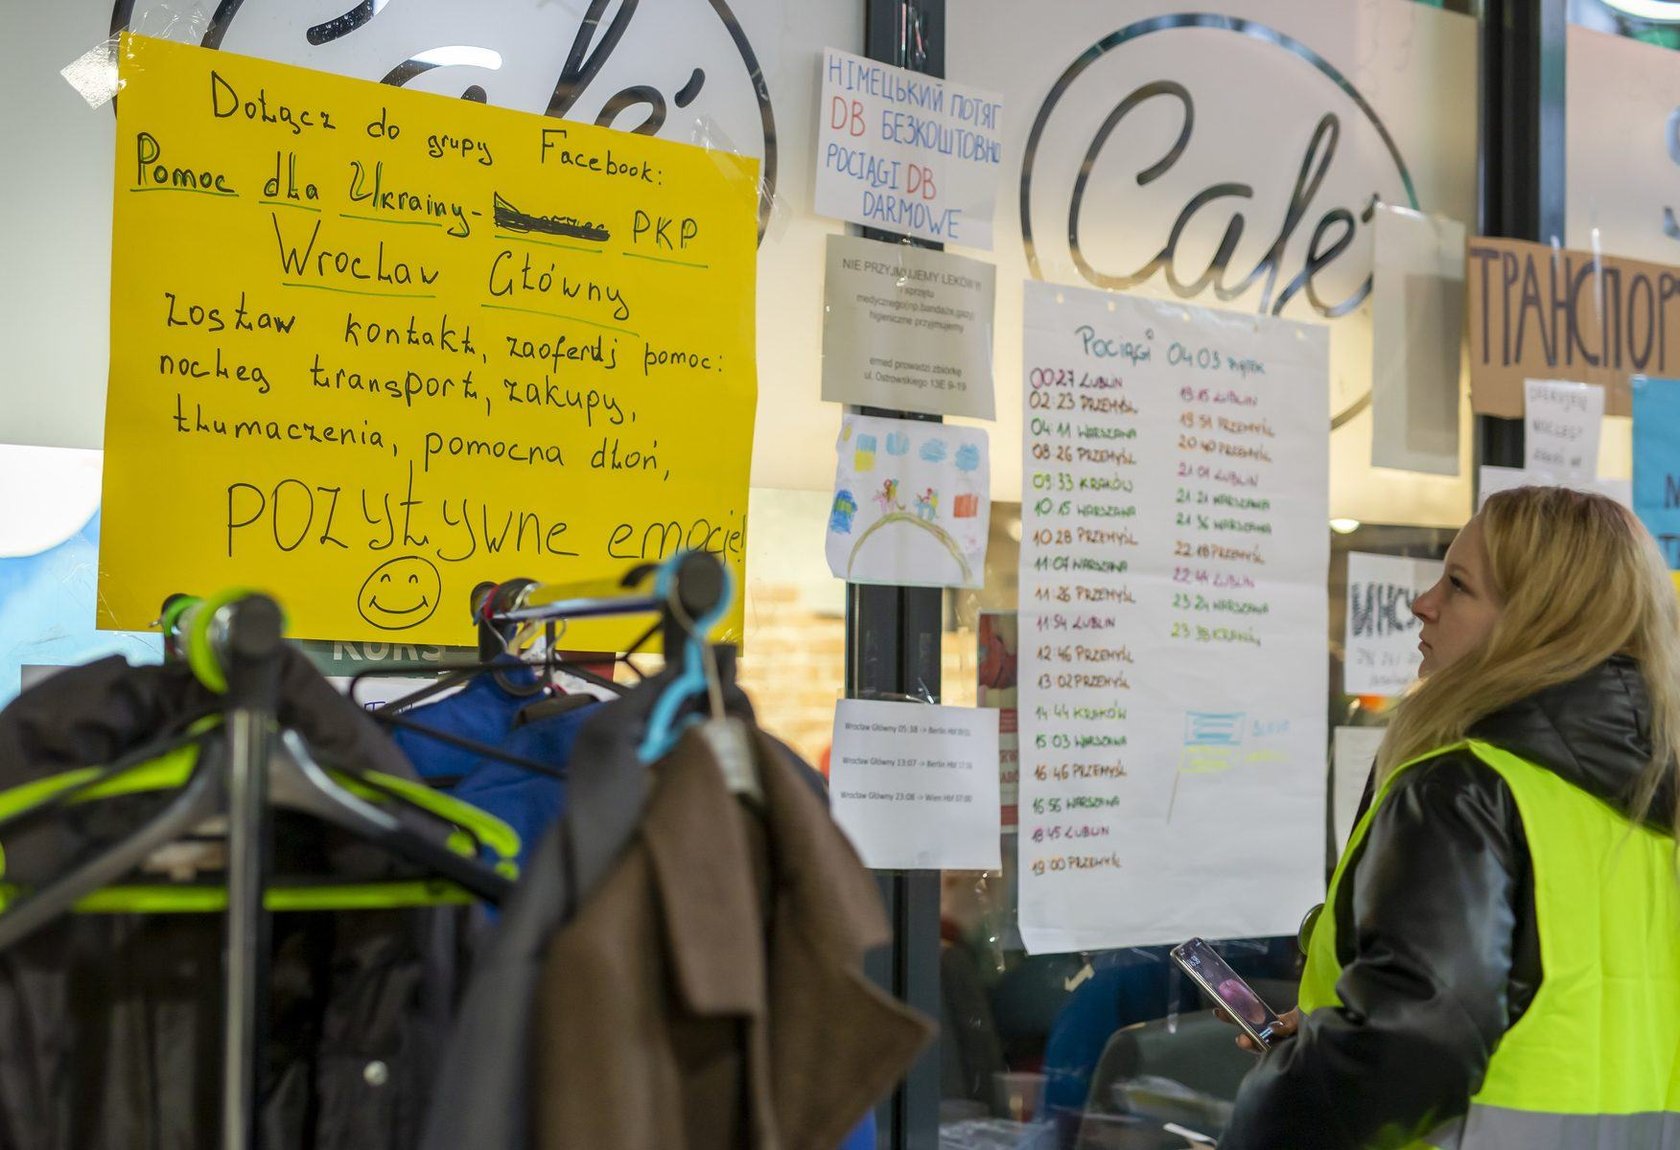 Dołącz do grupy Facebook:
Pomoc dla Ukrainy- PKP
Wrocław Główny
zostaw kontakt, zaoferuj pomoc:
nocleg transport, zakupy,
tłumaczenia, pomocna dłoń,
POZYtYWNE emocje!
KURS
НІМЕЦЬКИЙ ПОТЯГ
DB БЕЗКОШТОВНО
POCIĄGI DB
DARMOWE
NIE PRZYJMUJEMY LEKÓW !!
i sprzętu
medycznego(np.bandaże,gazy)
higieniczne przyjmujemy
emed prowadzi zbiórkę
ul. Ostrowskiego 13E 9-19
Wrocław Główny 05:38 -> Berlin Hbf
Wrocław Główny 13:07 -> Berlin Hbf
Wrocław Główny 23:08 -> Wien Hbf 07:00
Café
Café
POCIĄGI 04.03 PIĄTEK
00:27 LUBLIN
02:23 PRZEMYŚL
04:11 WARSZAWA
08:26 PRZEMYŚL
09:33 KRAKÓW
10:15 WARSZAWA
10:28 PRZEMYŚL
11:07 WARSZAWA
11:26 PRZEMYŚL
11:54 LUBLIN
12:46 PRZEMYŚL
13:02 PRZEMYŚL
14:44 KRAKÓW
15:03 WARSZAWA
16:46 PRZEMYŚL
WARSZAWA
18:45 LUBLIN
19:00 PRZEMYŚL
LUBLIN
19:51 PRZEMYŚL
20:40 PRZEMYŚL
21:01 LUBLIN
21:21 WARSZAWA
21:36 WARSZAWA
22:18 PRZEMYŚL
22:44 LUBLIN
23:24 WARSZAWA
23:38 KRAKÓW
ТРАНСПОР